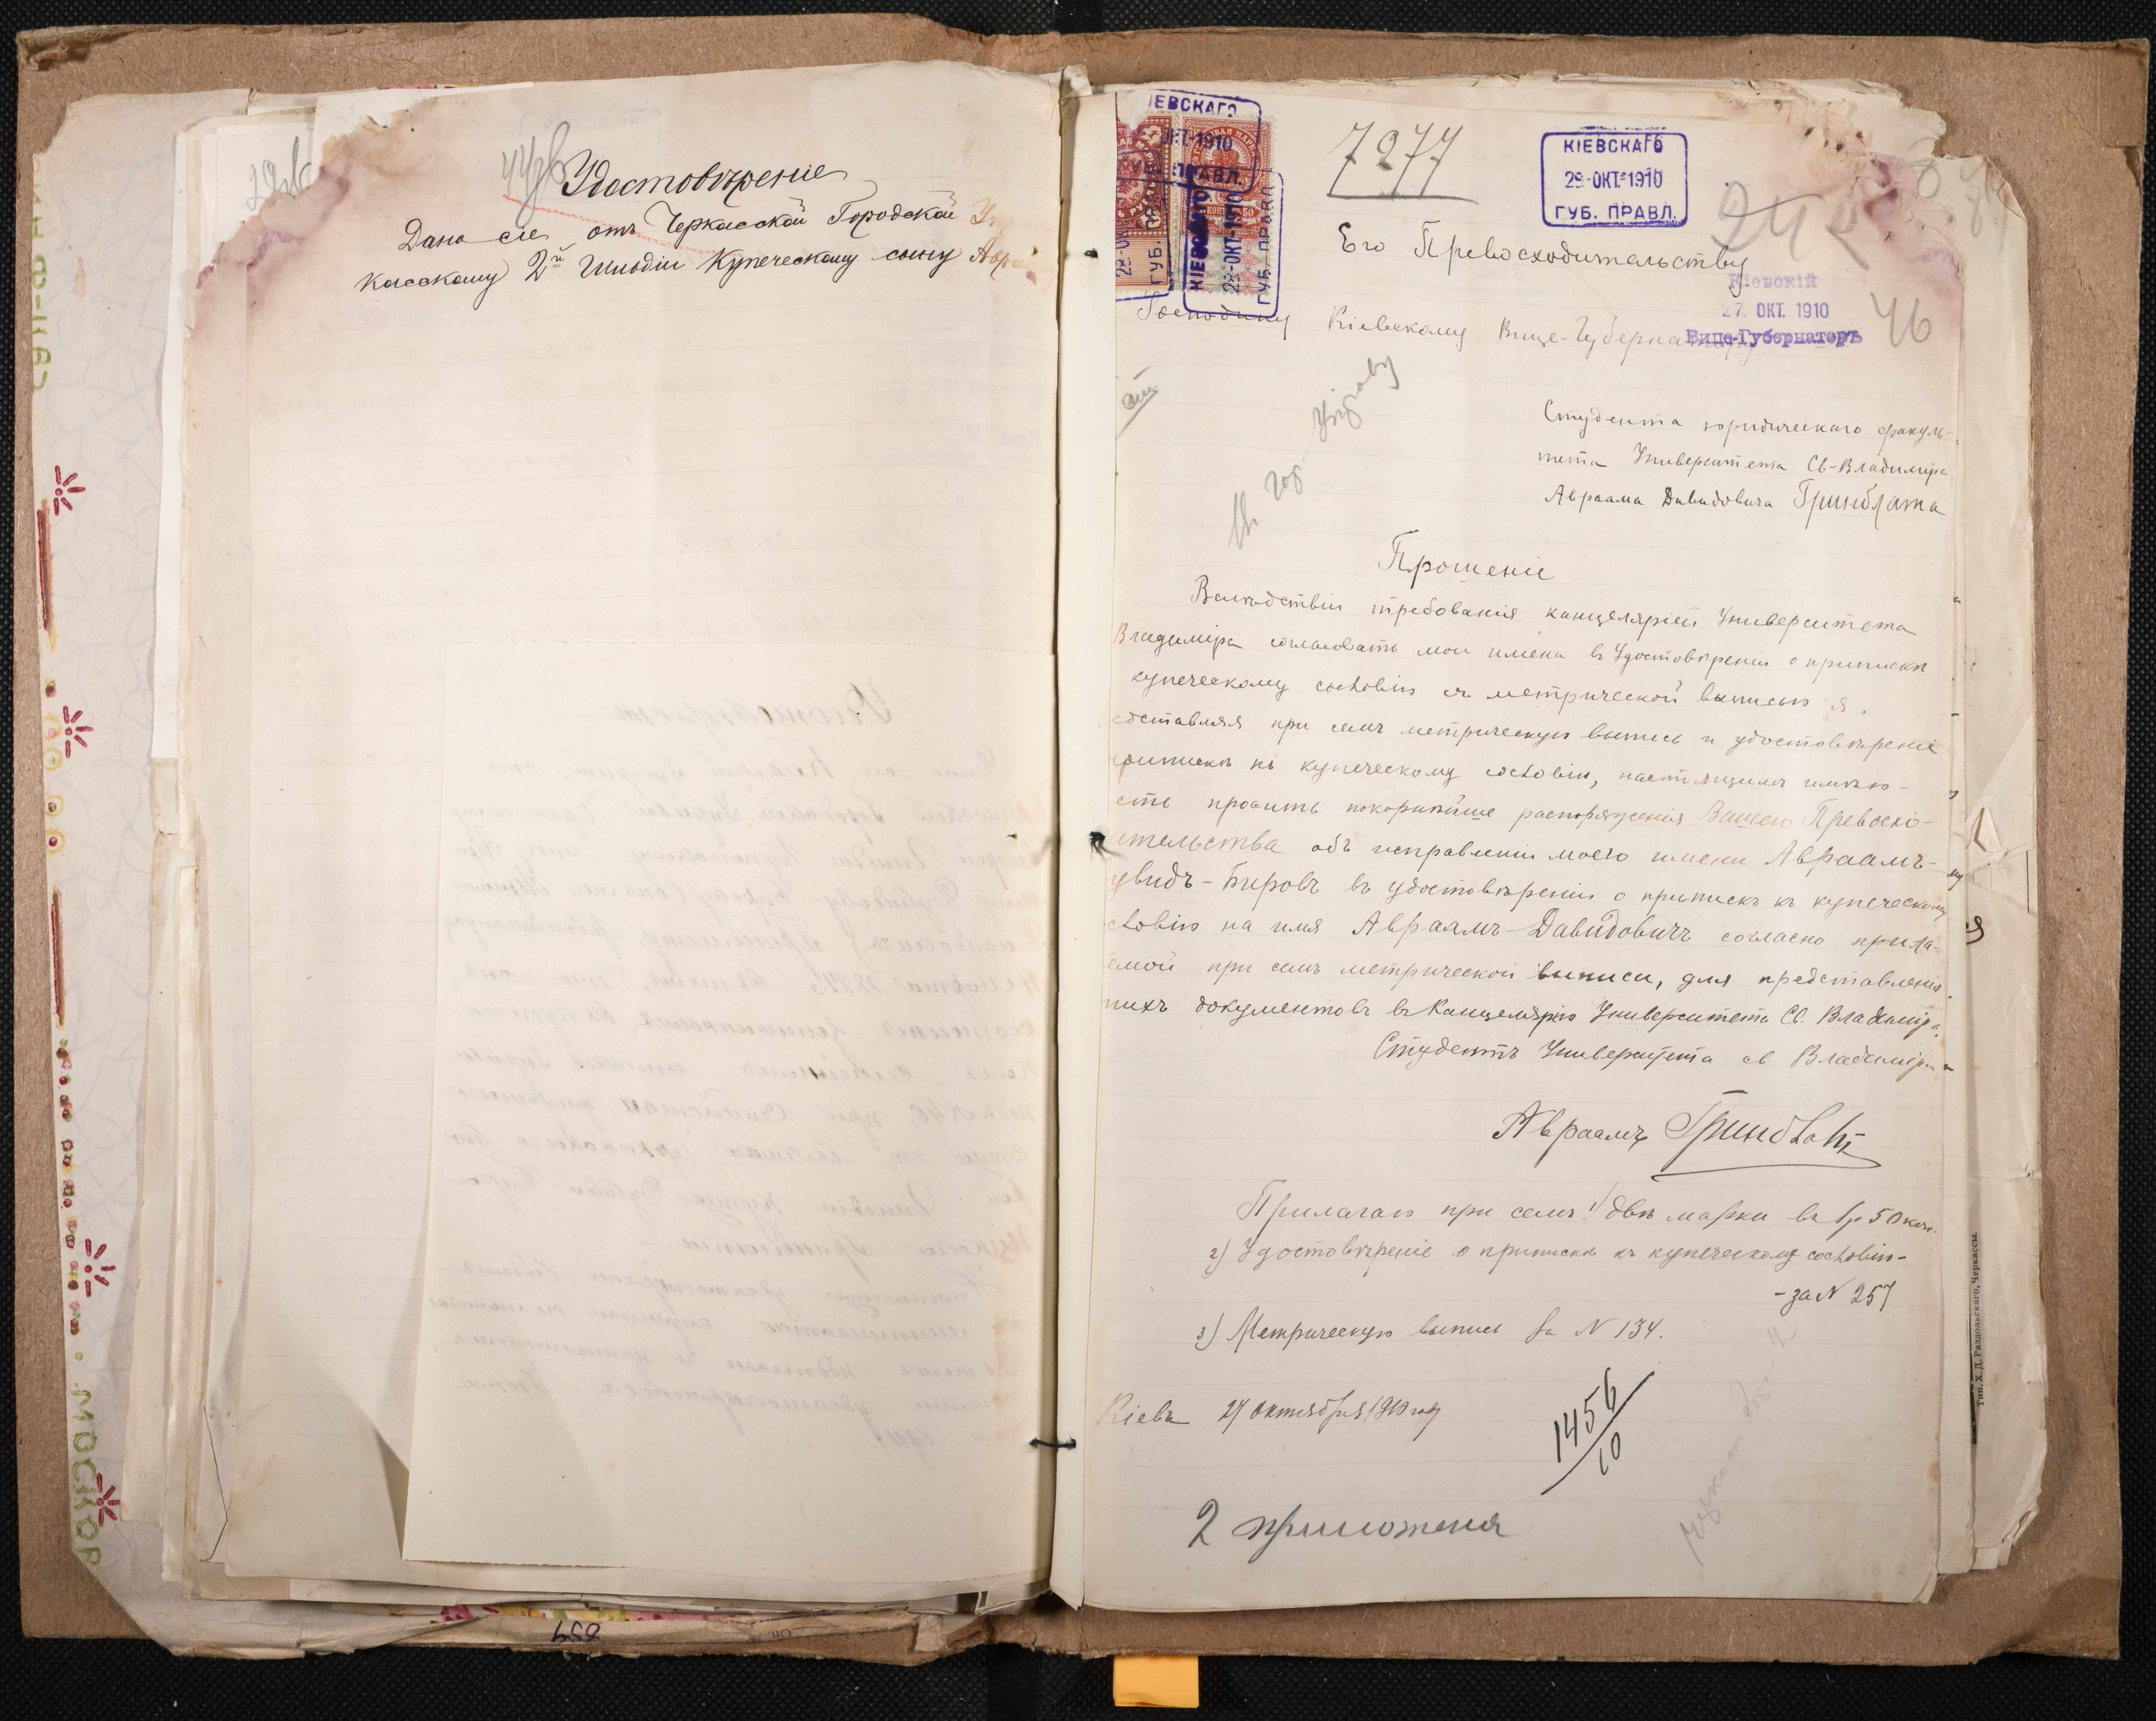 Удостовѣреніе
Дано сіе отъ Черкасской Городской
касскому 2й Гильдіи Купеческому сыну
7277
КІЕВСКАГО
29-ОКТ-1910
ГУБ. ПРАВЛ.
Его Превосходительству
Кіевскій
27. ОКТ. 1910
Вице-Губернаторъ
46
Господину Кіевскому Вице-Губернатору
Студента юридическаго факуль-
тета Университета Св-Владиміра
Авраама Давидовича Гринблата
Прошеніе
Вслѣдствіи требованія канцеляріи Университета
Владиміра согласовать мои имена въ Удостовѣреніи о припискѣ
купеческому сословію съ метрической выписью я,
едставляя при семъ метрическую выпись и удостовѣреніе
припискѣ къ купеческому сословію, настоящимъ имѣю
сть просить покорнѣйше распоряженія Вашего Превосхо-
ительства объ исправленіи моего имени Авраамъ-
увидъ-Беровъ въ удостовѣреніи о припискѣ къ купеческому
словію на имя Авраамъ-Давидовичъ согласно прила-
емой при семъ метрической выписи, для представленія
тихъ документовъ въ Канцелярію Университета Св. Владиміра.
Студентъ Университета св Владиміра
Авраамъ Гринблатъ
Прилагаю при семъ 1) двѣ марки въ 1р 50 коп.
2) Удостовѣреніе о припискѣ къ купеческому сословію-
-за N 257
3) Метрическую выпись за N 134.
Кіевъ 27 октября 1910 год
1456/10
2 приложенія
Тип. Х. Д. Раздольскаго, Черкассы.
859